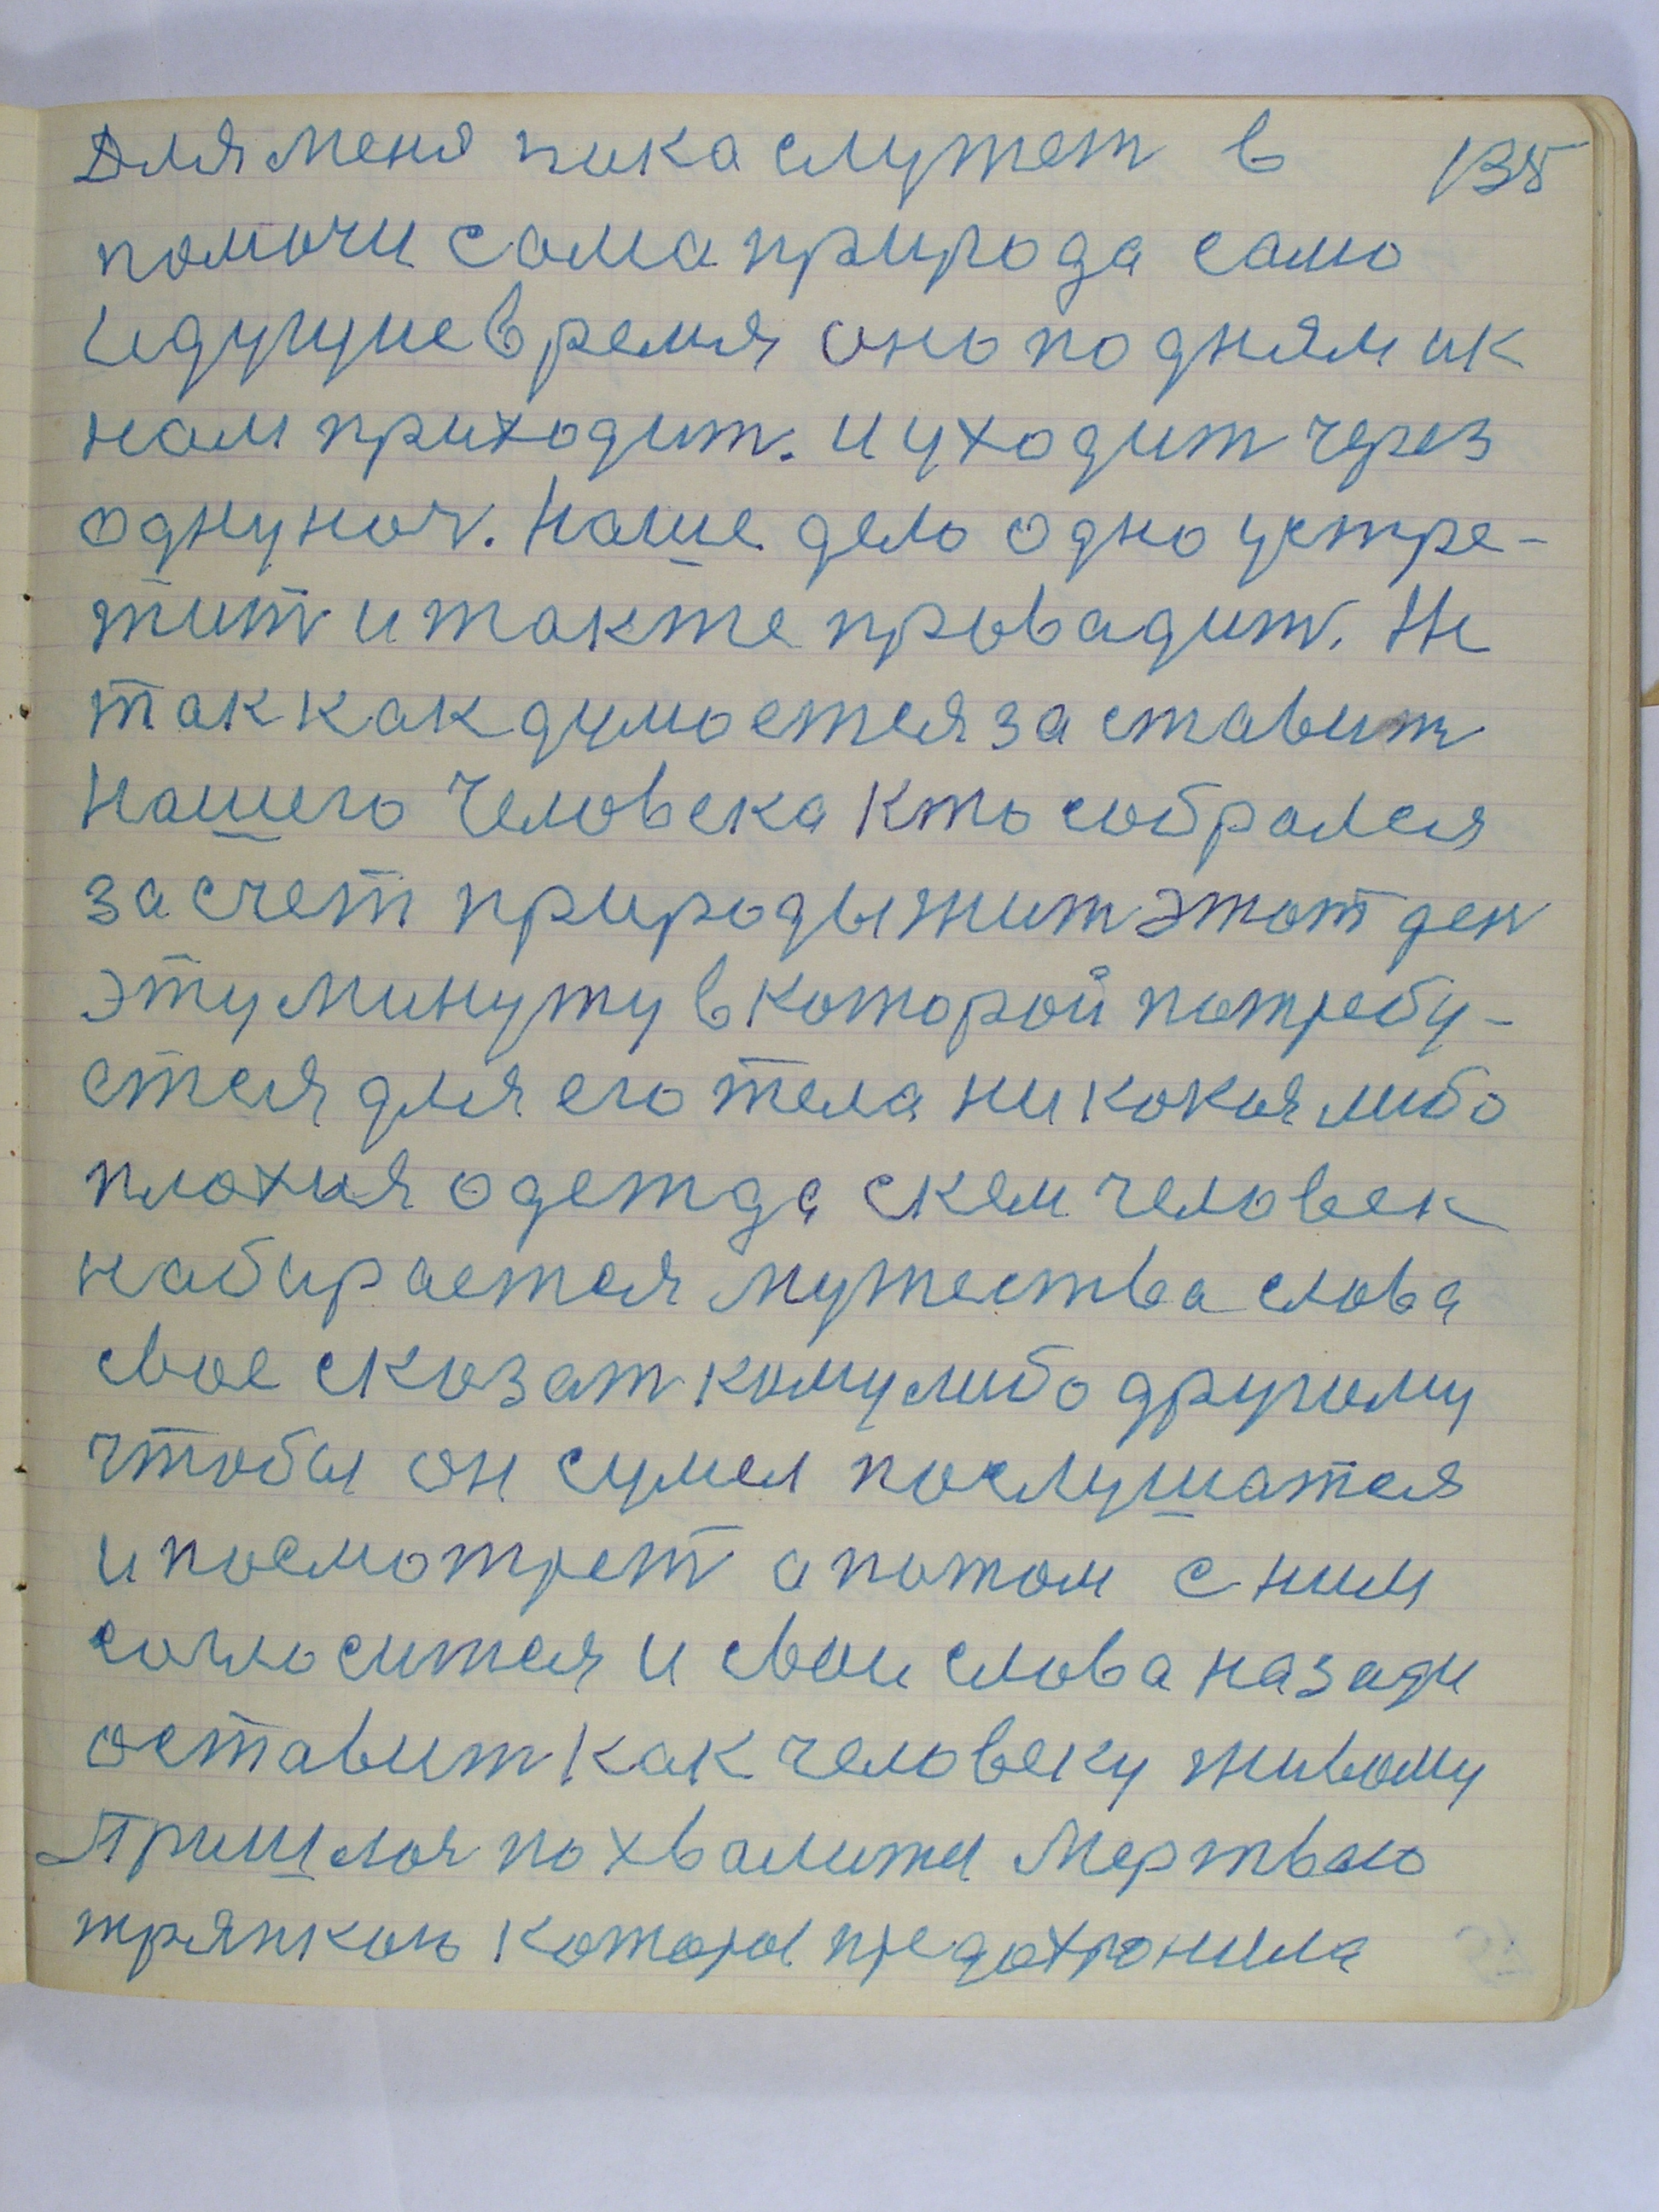 Для меня пока служет в 135
помочи сама природа само
идущие время оно по дням и к
нам приходит. и уходит через
одну ноч. Наше дело одно устре-
тит и также провадит. Не
так как думается заставит
нашего человека кто собрался
за счет природы жит этот ден
эту минуту в которой потребу-
ется для его тела ни какая либо
плохия одежда с кем человек
набирается мужества слова
свое сказат кому либо другому
чтобы он сумел послушатся
и посмотрет а потом с ним
согласится и свои слова назади
оставит как человеку живому
Пришлоя похвалится мертвою
тряпкою которые предохронила